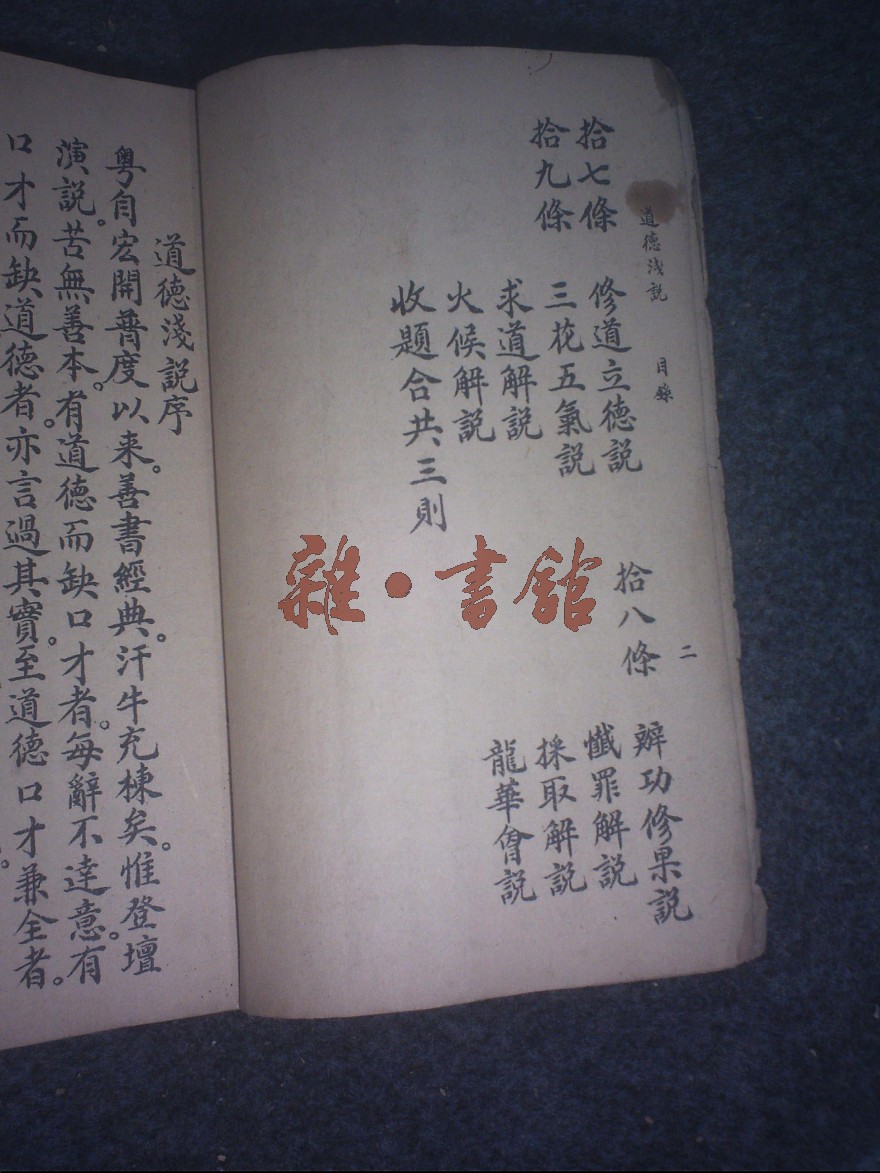 道德浅説 目錄 二
拾七條 修道立德説 拾八條 辦功修果説
拾九條 三花五氣説 懺罪解説
求道解説 採取解説
火候解説 龍華會説
收題合共三則
雜·書館
道德淺説序
粤自宏開普度以来。善書經典。汗牛充棟矣。惟登壇
演説。苦無善本。有道德而缺口才者。每辭不達意。有
口才而缺道德者。亦言過其實。至道德口才兼全者。